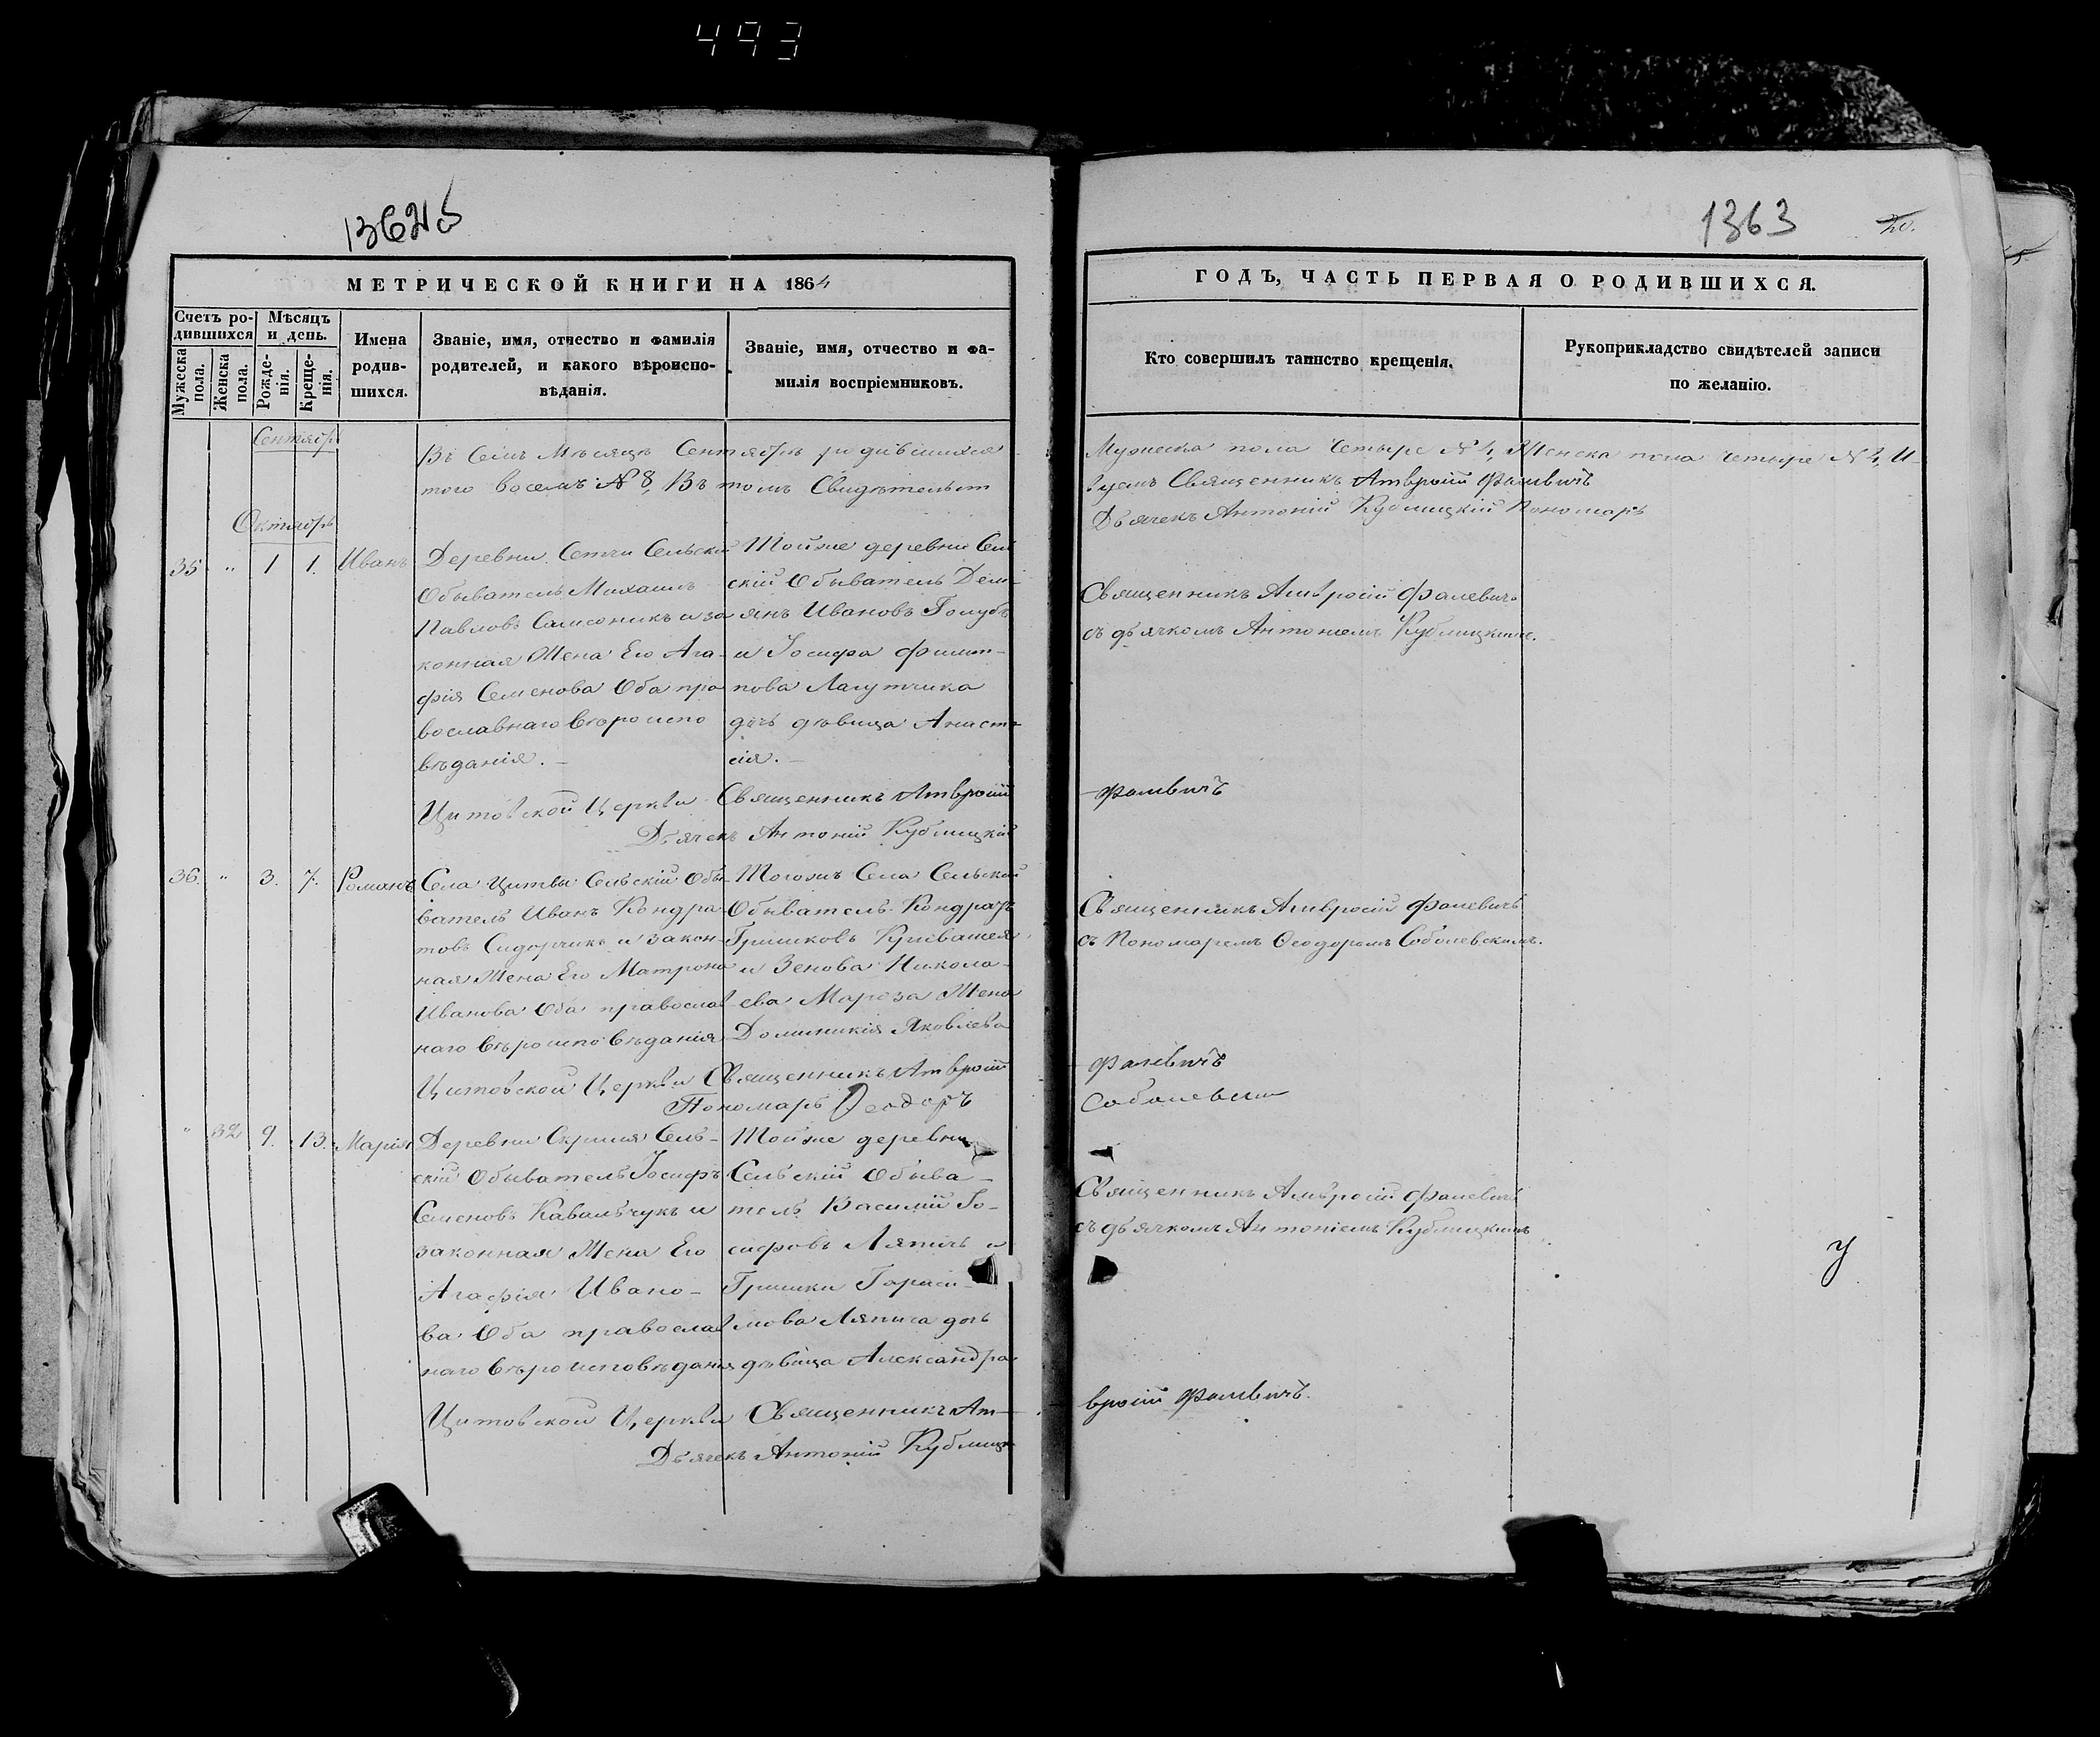 493
1363
20.
МЕТРИЧЕСКОЙ КНИГИ НА 1864
Счетъ ро-
дившихся
Мужеска
пола.
Женска
пола.
Мѣсяцъ
и день.
Рожде-
нія.
Креще-
нія.
Имена
родив-
шихся.
Званіе, имя, отчество и фамилія
родителей, и какого вѣроиспо-
вѣданія.
Званіе, имя, отчество и фа-
милія воспріемниковъ.
Сентябрь
Въ Семъ Мѣсяцѣ Сентябрѣ родившихся
того восемь № 8, Въ томъ Свидѣтельст
Октябрь
35 " 1 1. Иванъ
Деревни Сельскій
Обыватель Михаилъ
Павловъ Самсоникъ и за
конная Жена Его Ага-
фія Семенова Оба пра
вославнаго вѣроиспо
вѣданія.
Тойже деревни Сель
скій Обыватель Деми-
янъ Ивановъ Голубъ
и Іосифа Филип-
пова Лагутчика
дочь дѣвица Анаста-
сія.
Цитовской Церкви Священникъ Амвросій
Дьячекъ Антоній Кублицкій
36. " 3. 7. Романъ
Села Цитвы Сельскій Обы-
ватель Иванъ Кондра-
товъ Сидорчикъ и закон-
ная Жена Его Матрона
Иванова Оба православ
наго вѣроисповѣданія
Тогожъ Села Сельскій
Обыватель Кондратъ
Гришковъ
и Зенова Никола-
ева Мароза Жена
Доминикія Яковлева
Цитовской Церкви Священникъ Амвросій
Пономарь Ѳеодоръ
" 32 9. 13. Марія
Деревни Скрыля Сель-
скій Обыватель Іосифъ
Семеновъ Кавальчукъ и
законная Жена Его
Агафія Ивано-
ва Оба православ
наго вѣроисповѣданія
Тойже деревни
Сельскій Обыва-
тель Василій Іо-
сифовъ Ляпичъ и
Гришки Гараси-
мова Ляпича дочь
дѣвица Александра
Цитовской Церкви Священникъ Ам-
Дьячекъ Антоній Кублицкі
ГОДЪ, ЧАСТЬ ПЕРВАЯ О РОДИВШИХСЯ.
Кто совершилъ таинство крещенія.
Рукоприкладство свидѣтелей записи
по желанію.
Мужеска пола Четыре № 4, Женска пола Четыре № 4, И-
вуемъ Священникъ Амвросій Фалевичъ
Дьячекъ Антоній Кублицкій Пономарь
Священникъ Амвросій Фалевичъ
съ дьячкомъ Антоніемъ Кублицкимъ.
Фалевичъ
Священникъ Амвросій Фалевичъ
съ Пономаремъ Ѳеодоромъ Соболевскимъ.
Фалевичъ
Соболевскій
Священникъ Амвросій Фалевичъ
съ дьячкомъ Антоніемъ Кублицкимъ
вросій Фалевичъ.